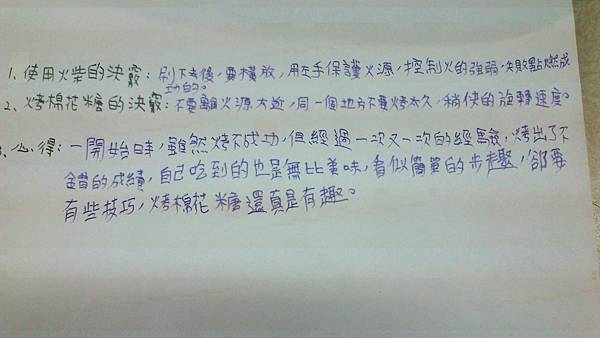 1、使用火柴的決竅：刷下去後，要橫放，用左手保護火源，控制火的強弱，失敗點燃成功的。
2、烤棉花糖的決竅：不要離火源太近，同一個地方不要烤太久，稍快的旋轉速度。
3、心得：一開始時，雖然烤不成功，但經過一次又一次的經驗，烤出了不
錯的成績，自己吃到的也是無比美味，看似簡單的步走驟，卻要
有些技巧，烤棉花糖還真是有趣。